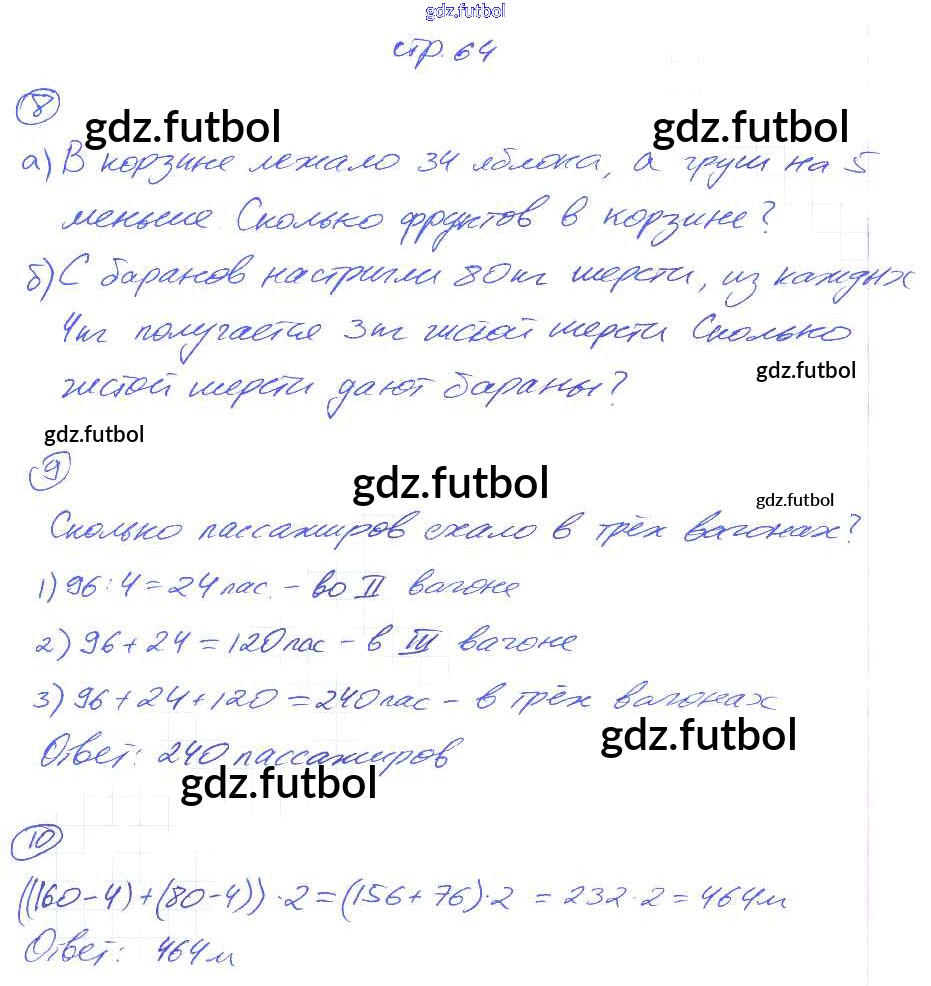 gdz.futbol
стр. 64
8
gdz.futbol gdz.futbol
а) В корзине лежало 34 яблока, а груш на 5
меньше. Сколько фруктов в корзине?
б) С баранов настригли 80 кг шерсти, из каждых
4 кг получается 3 кг чистой шерсти Сколько
чистой шерсти дают бараны?
gdz.futbol
gdz.futbol
9
gdz.futbol
gdz.futbol
Сколько пассажиров ехало в трёх вагонах?
1) 96 : 4 = 24 пас. – во II вагоне
2) 96 + 24 = 120 пас – в III вагоне
3) 96 + 24 + 120 = 240 пас – в трёх вагонах
gdz.futbol
Ответ: 240 пассажиров
gdz.futbol
10
((160 – 4) + (80 – 4)) · 2 = (156 + 76) · 2 = 232 · 2 = 464 м
Ответ: 464 м